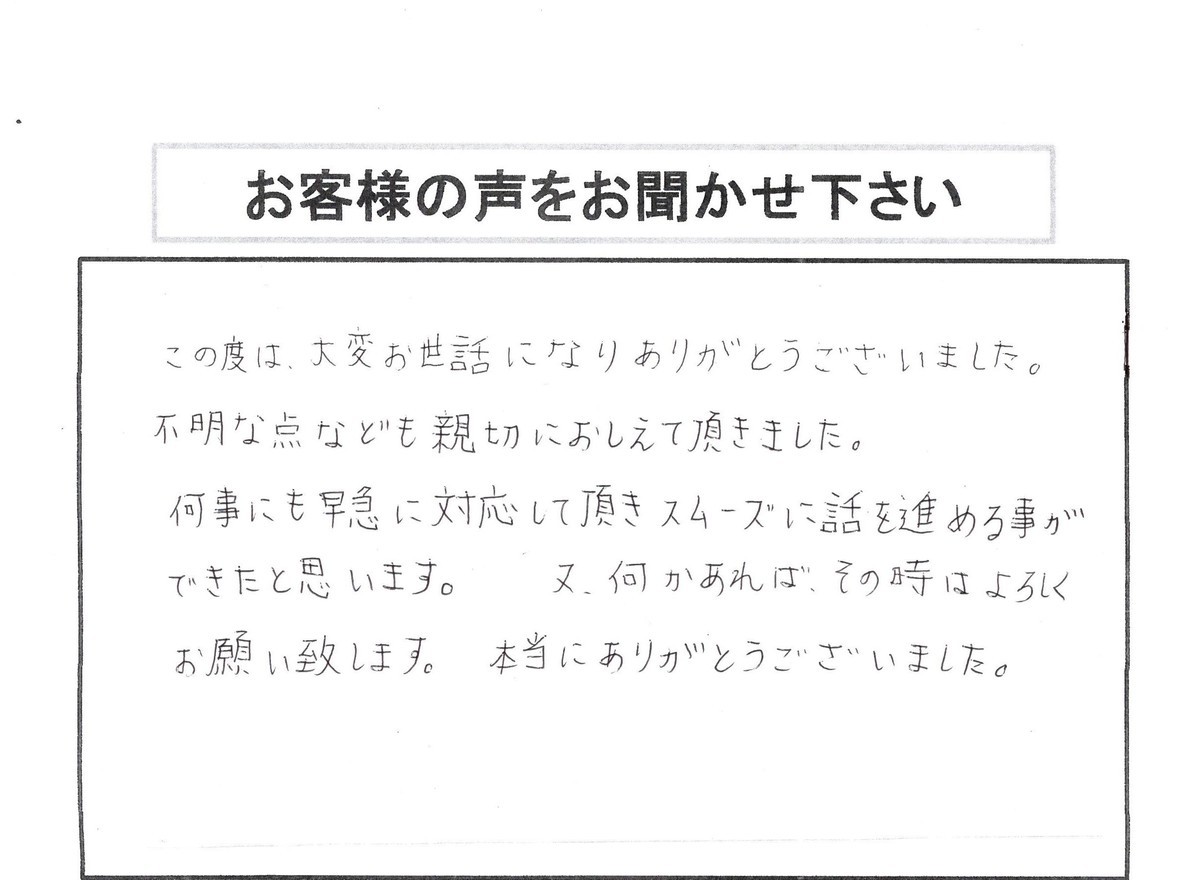 お客様の声をお聞かせ下さい
この度は、大変お世話になりありがとうございました。
不明な点なども親切におしえて頂きました。
何事にも早急に対応して頂きスムーズに話を進める事が
できたと思います。　又、何かあれば、その時はよろしく
お願い致します。　本当にありがとうございました。